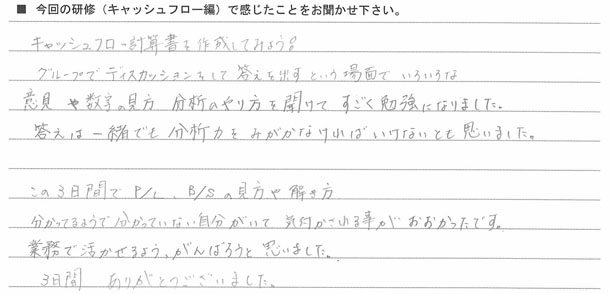 ■ 今回の研修（キャッシュフロー編）で感じたことをお聞かせ下さい。
キャッシュフロー計算書を作成してみよう！
グループでディスカッションをして答えを出すという場面でいろいろな
意見や数字の見方 分析のやり方を聞けてすごく勉強になりました。
答えは一緒でも分析力をみがかなければいけないとも思いました。
この3日間でP/L、B/Sの見方や解き方
分かってるようで分かっていない自分がいて 気付かされる事がおおかったです。
業務で活かせるよう、がんばろうと思いました。
3日間 ありがとうございました。